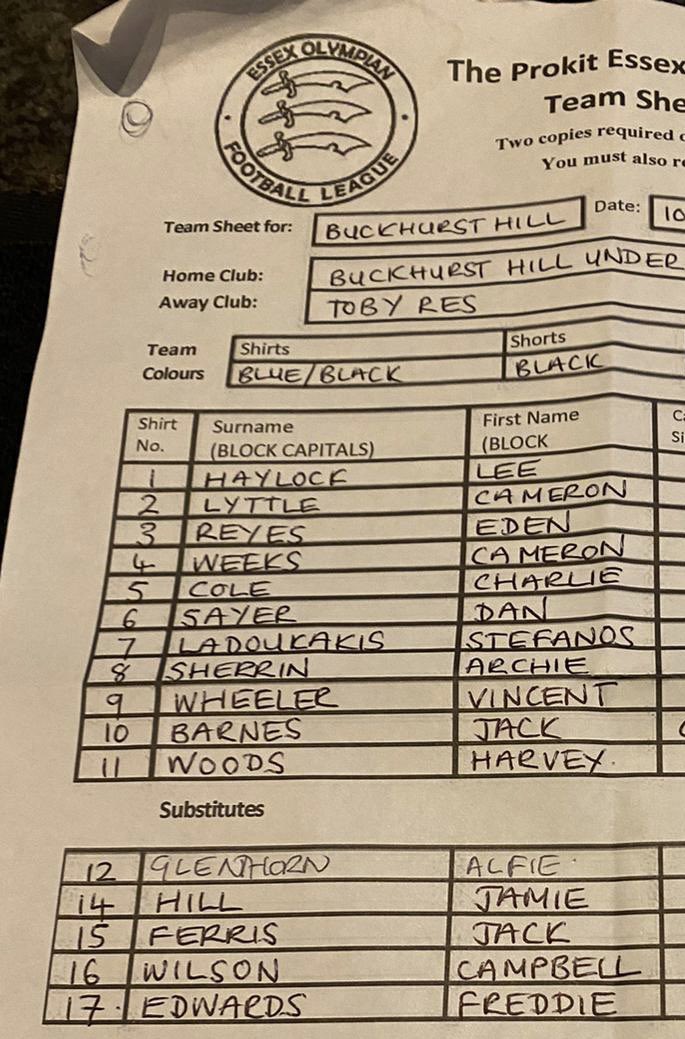 ESSEX OLYMPIAN
FOOTBALL LEAGUE
The Prokit Essex
Team She
Two copies required
You must also re
Team Sheet for: BUCKHURST HILL Date: 10
Home Club: BUCKHURST HILL UNDER
Away Club: TOBY RES
Team Colours Shirts BLUE/BLACK Shorts BLACK
Shirt No. Surname (BLOCK CAPITALS) First Name (BLOCK
1 HAYLOCK LEE
2 LYTTLE CAMERON
3 REYES EDEN
4 WEEKS CAMERON
5 COLE CHARLIE
6 SAYER DAN
7 LADOUKAKIS STEFANOS
8 SHERRIN ARCHIE
9 WHEELER VINCENT
10 BARNES JACK
11 WOODS HARVEY.
Substitutes
12 GLENTHORN ALFIE
14 HILL JAMIE
15 FERRIS JACK
16 WILSON CAMPBELL
17 EDWARDS FREDDIE